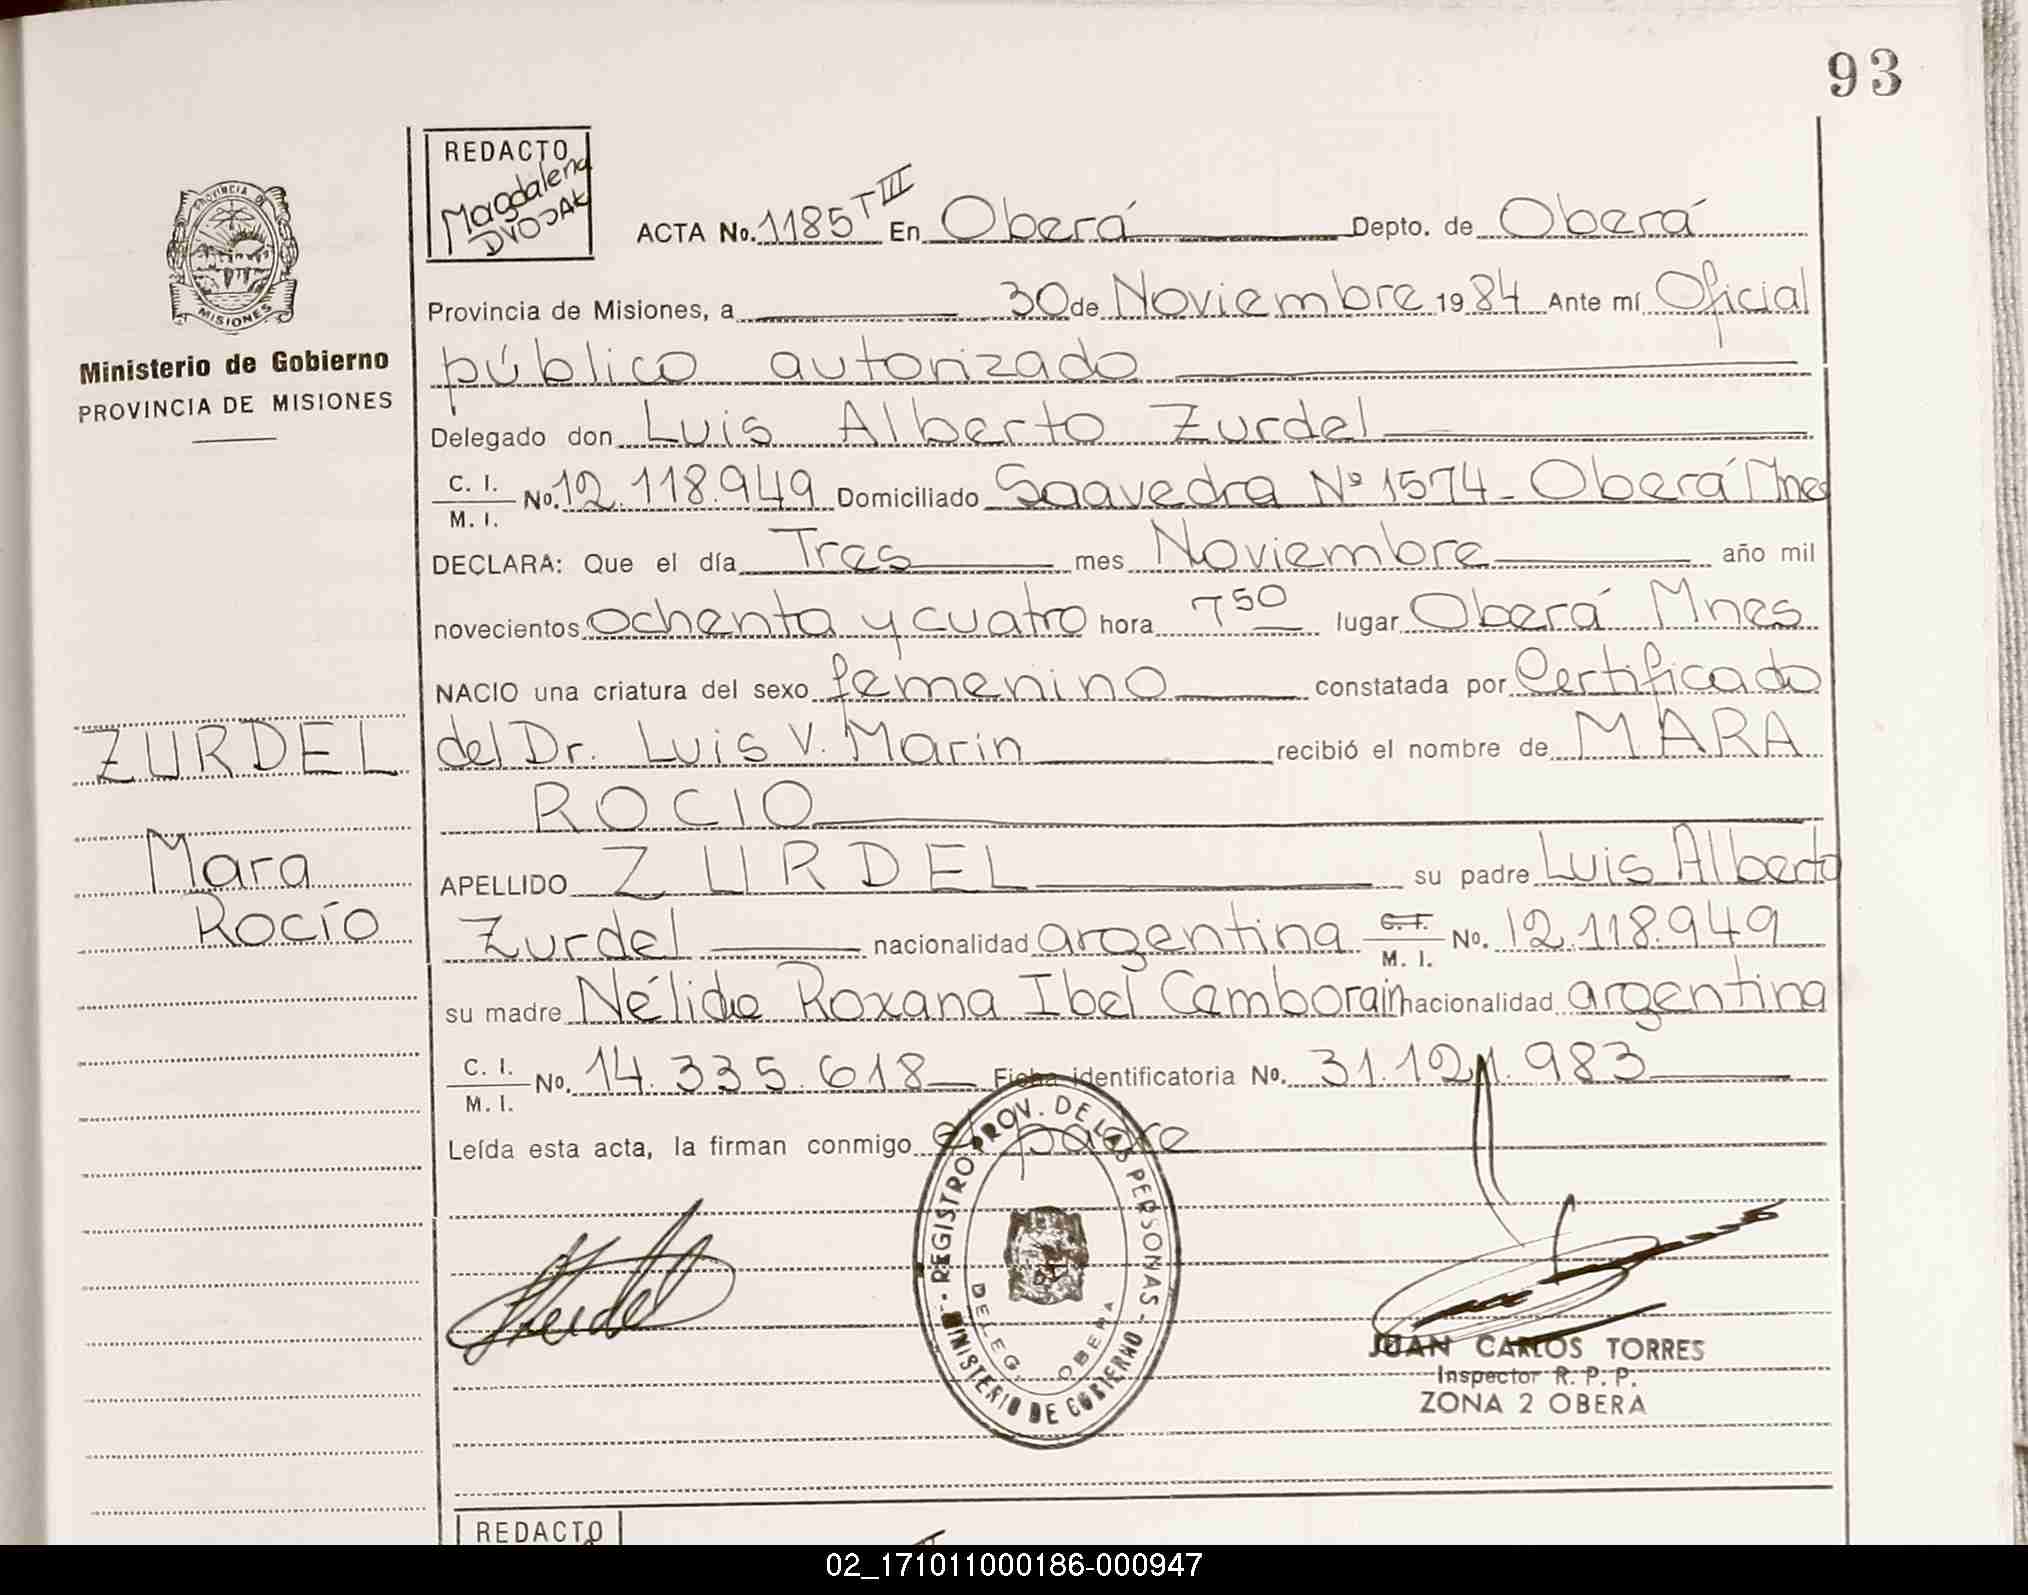 93
REDACTO
Magdalena
DVOJAK
PROVINCIA DE
MISIONES
Ministerio de Gobierno
PROVINCIA DE MISIONES
ACTA No. 1185 T III En Oberá Depto. de Oberá
Provincia de Misiones, a 30 de Noviembre 1984 Ante mí Oficial
público autorizado
Delegado don Luis Alberto Zurdel
C. I. / M. I. No. 12.118.949 Domiciliado Saavedra Nº 1574 - Oberá Mnes
DECLARA: Que el día Tres mes Noviembre año mil
novecientos ochenta y cuatro hora 7 50 lugar Oberá Mnes
NACIO una criatura del sexo femenino constatada por Certificado
ZURDEL
del Dr. Luis V. Marin recibió el nombre de MARA
ROCIO
Mara
Rocío
APELLIDO ZURDEL su padre Luis Alberto
Zurdel nacionalidad argentina C. I. / M. I. No. 12.118.949
su madre Nélida Roxana Ibel Camborain nacionalidad argentina
C. I. / M. I. No. 14.335.618 Ficha identificatoria No. 31.121.983
Leída esta acta, la firman conmigo el padre
REGISTRO PROV. DE LAS PERSONAS - MINISTERIO DE GOBIERNO
DELEG. OBERA
JUAN CARLOS TORRES
Inspector R. P. P.
ZONA 2 OBERA
REDACTO
02_171011000186-000947